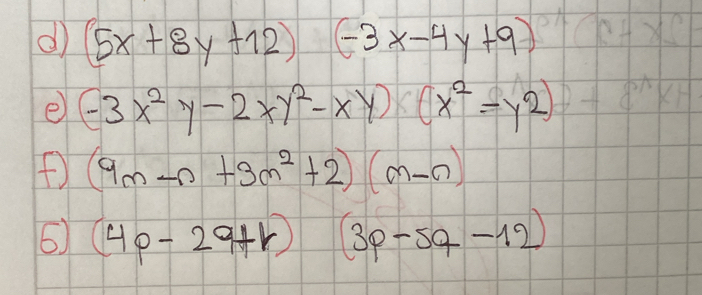 d) (5x+8y+12) (-3x-4y+9)
e) (-3x²y-2xy²-xy) (x²-y2)
f) (9m-n+3m²+2) (m-n)
6) (4p-2q+r) (3p-5q-12)